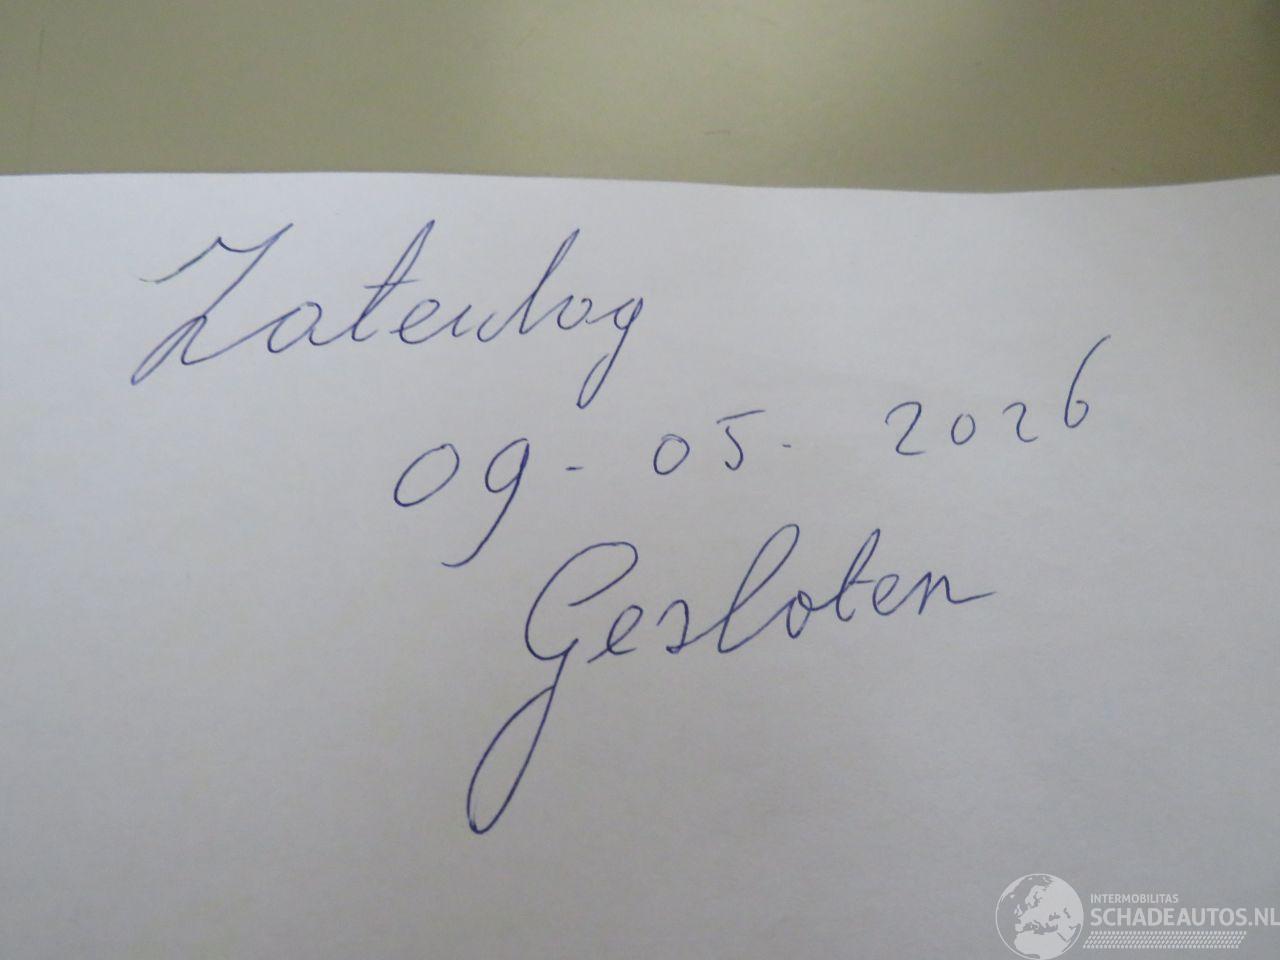 Zaterdag
09-05-2026
Gesloten
INTERMOBILITAS
SCHADEAUTOS.NL